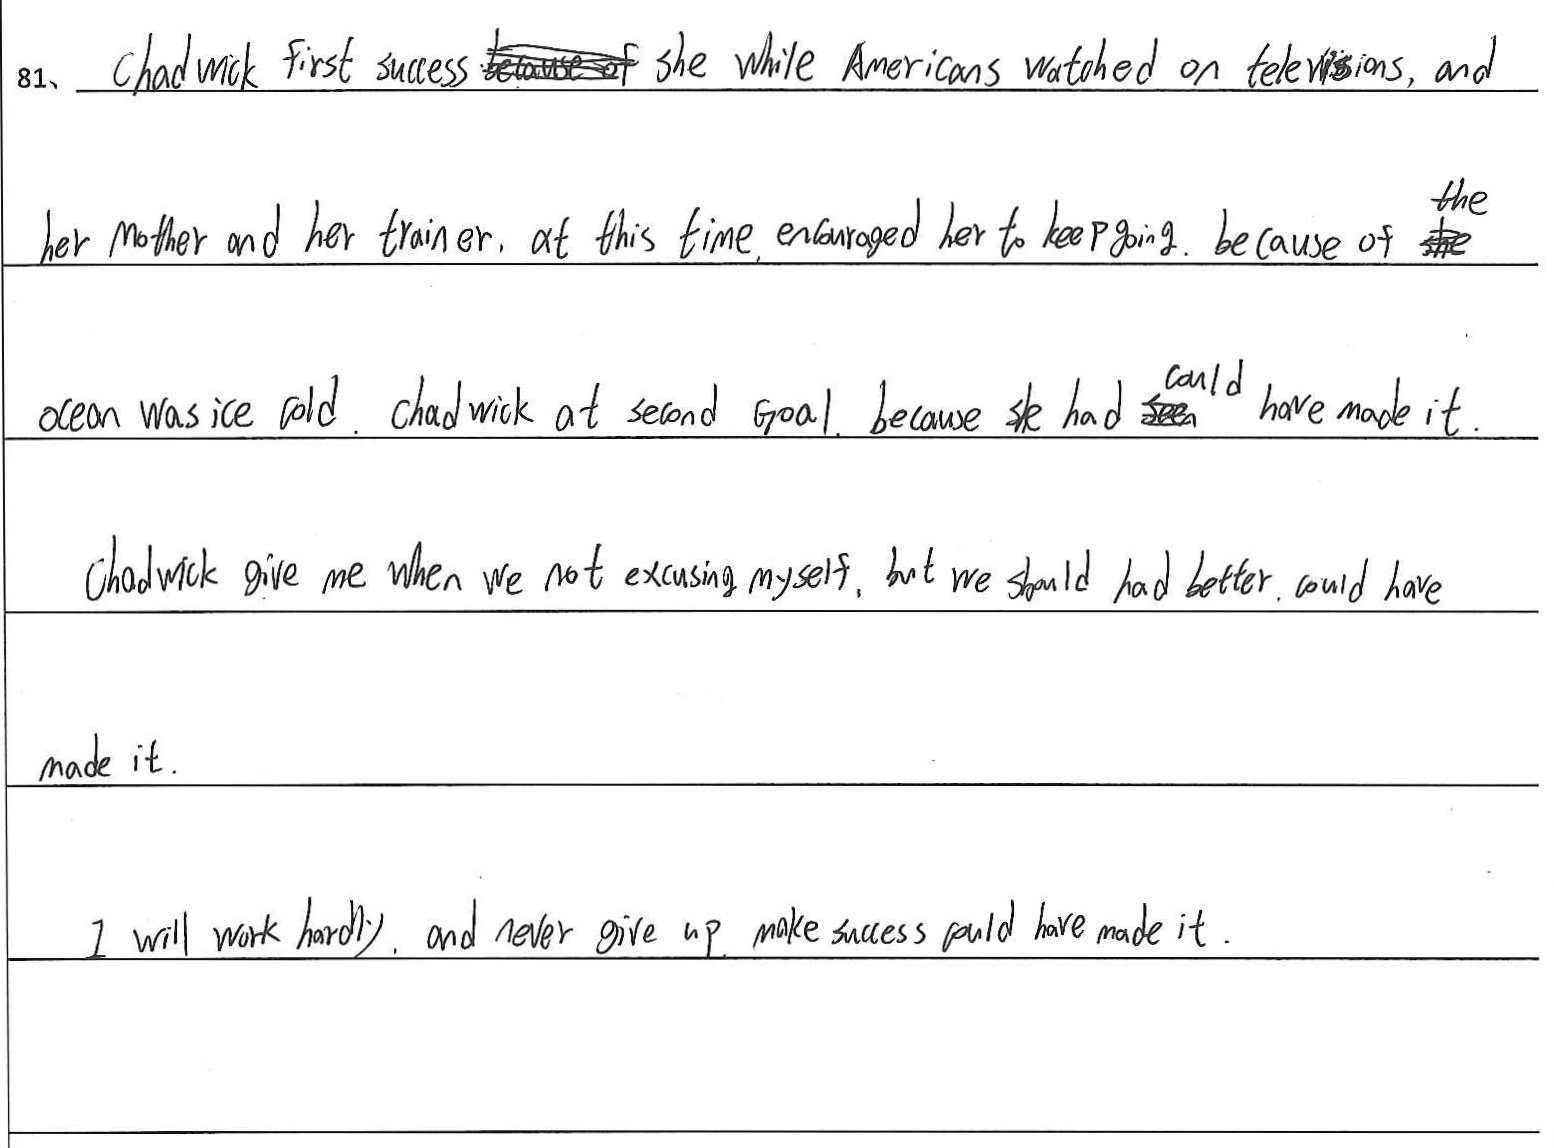 81、 Chadwick first success she while Americans watched on televisions, and
her mother and her trainer. at this time, encouraged her to keep going. because of the
ocean was ice cold. Chadwick at second Goal. because she had could have made it.
Chadwick give me when we not excusing myself, but we should had better. could have
made it.
I will work hardly, and never give up. make success could have made it.